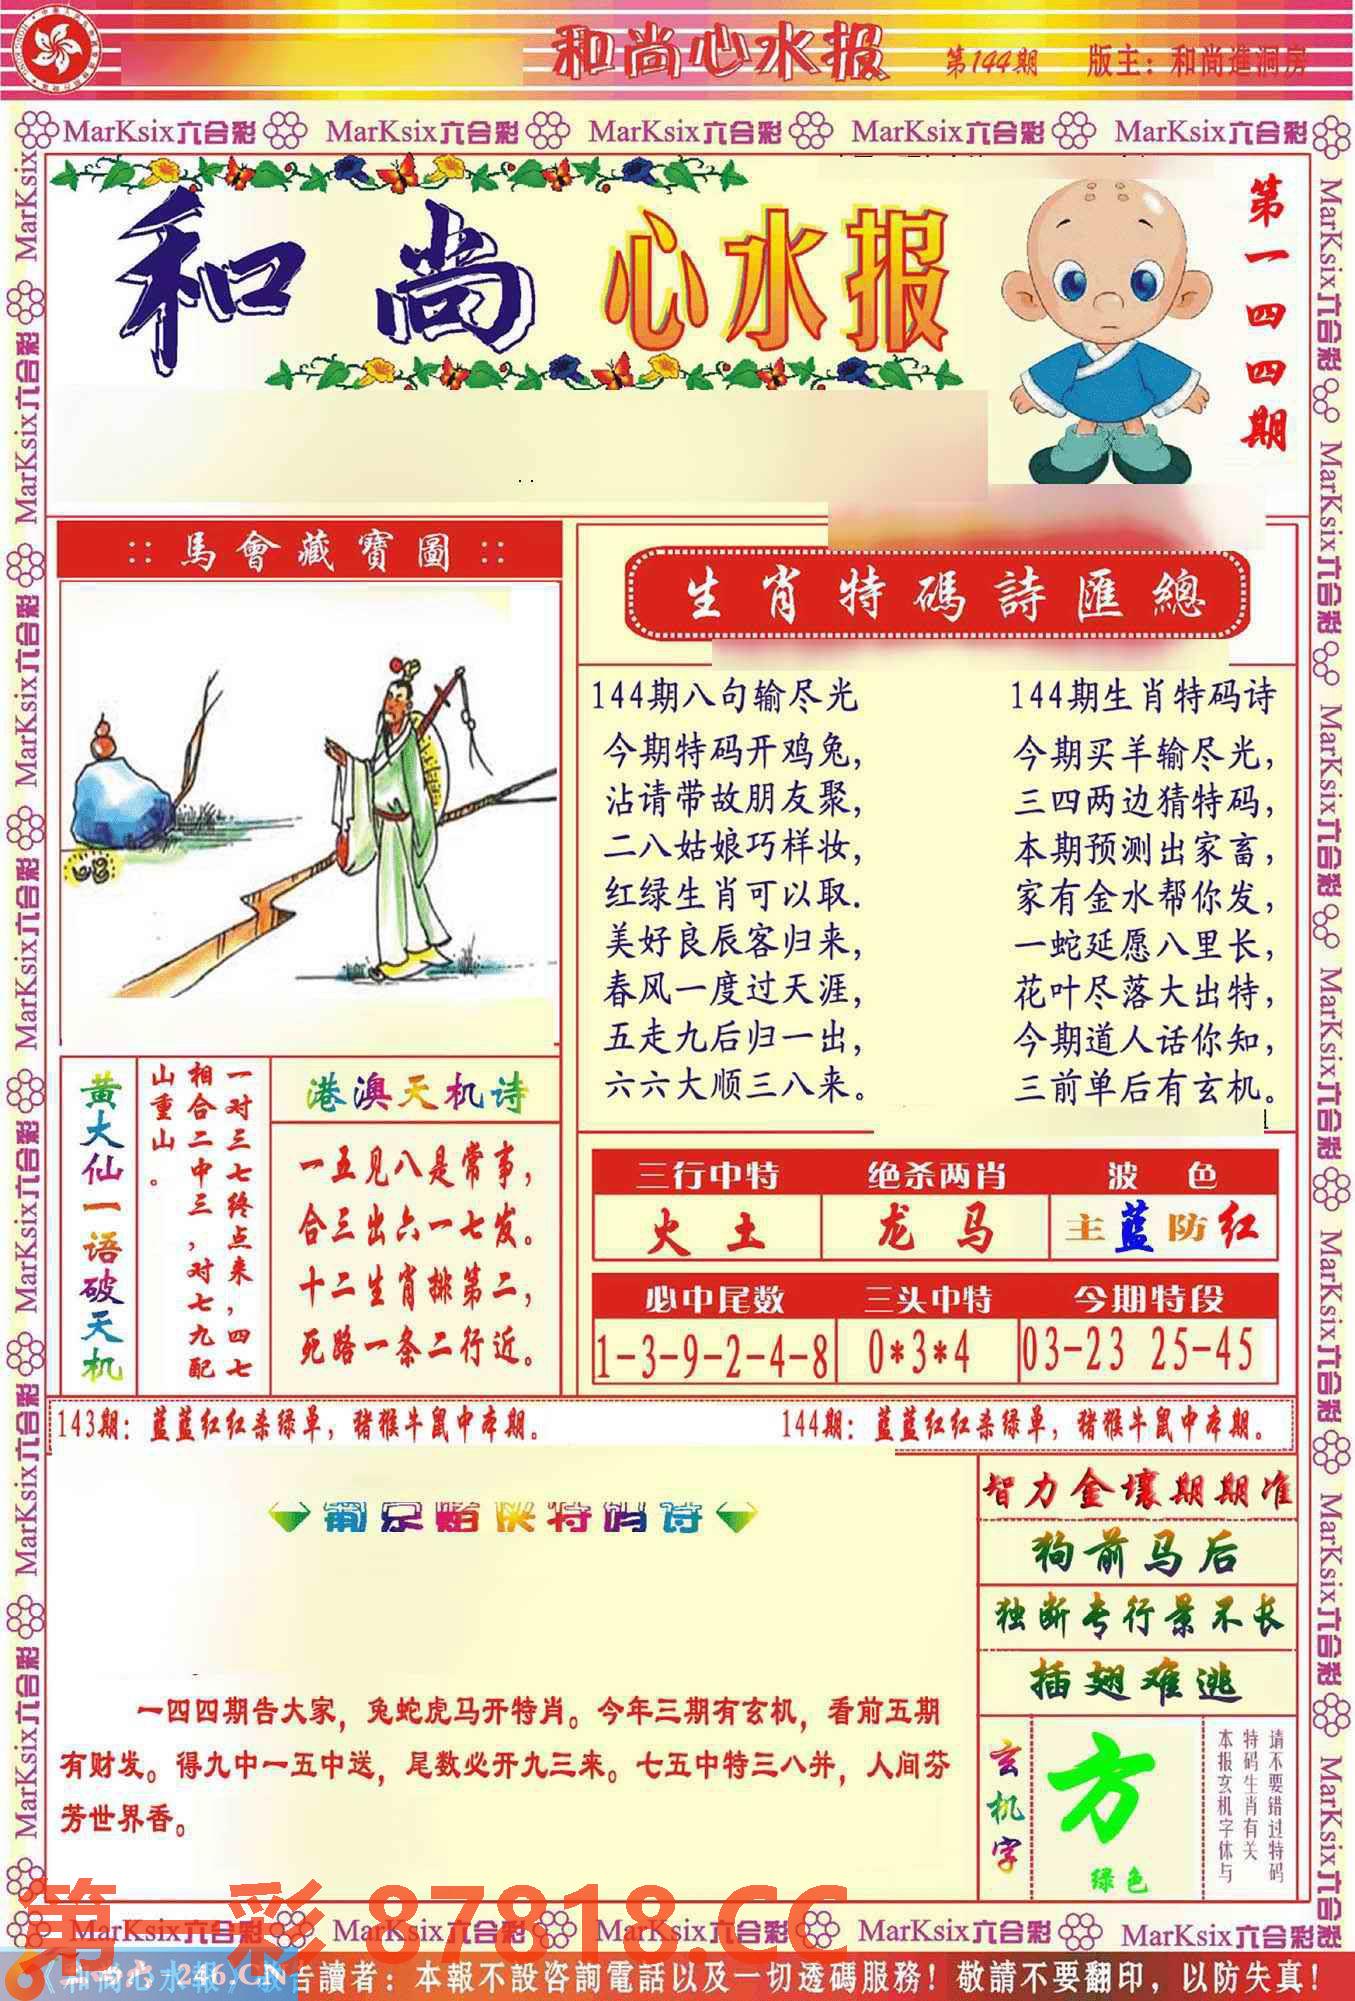 和尚心水报
第144期
版主：和尚進洞房
MarKsix六合彩 MarKsix六合彩 MarKsix六合彩 MarKsix六合彩 MarKsix六合彩
和尚心水报
第一四四期
馬會藏寶圖
生肖特碼詩匯總
144期八句输尽光
今期特码开鸡兔，
沾请带故朋友聚，
二八姑娘巧样妆，
红绿生肖可以取.
美好良辰客归来，
春风一度过天涯，
五走九后归一出，
六六大顺三八来。
144期生肖特码诗
今期买羊输尽光，
三四两边猜特码，
本期预测出家畜，
家有金水帮你发，
一蛇延愿八里长，
花叶尽落大出特，
今期道人话你知，
三前单后有玄机。
黄大仙一语破天机
一对三七终点来，四七
相合二中三，对七九配
山重山。
港澳天机诗
一五见八是常事，
合三出六一七发。
十二生肖排第二，
死路一条二行近。
三行中特 绝杀两肖 波 色
火 土 龙 马 主蓝防红
必中尾数 三头中特 今期特段
1-3-9-2-4-8 0*3*4 03-23 25-45
143期：蓝蓝红红杀绿单，猪猴牛鼠中本期。
144期：蓝蓝红红杀绿单，猪猴牛鼠中本期。
葡京赌侠特码诗
一四四期告大家，兔蛇虎马开特肖。今年三期有玄机，看前五期
有财发。得九中一五中送，尾数必开九三来。七五中特三八并，人间芬
芳世界香。
智力金壤期期准
狗前马后
独断专行景不长
插翅难逃
玄机字
方
绿色
请不要错过特码
特码生肖有关
本报玄机字体与
第一彩 87818.CC
MarKsix六合彩 MarKsix六合彩 MarKsix六合彩 MarKsix六合彩 MarKsix六合彩
246.CN
告讀者：本報不設咨詢電話以及一切透碼服務！敬請不要翻印，以防失真！